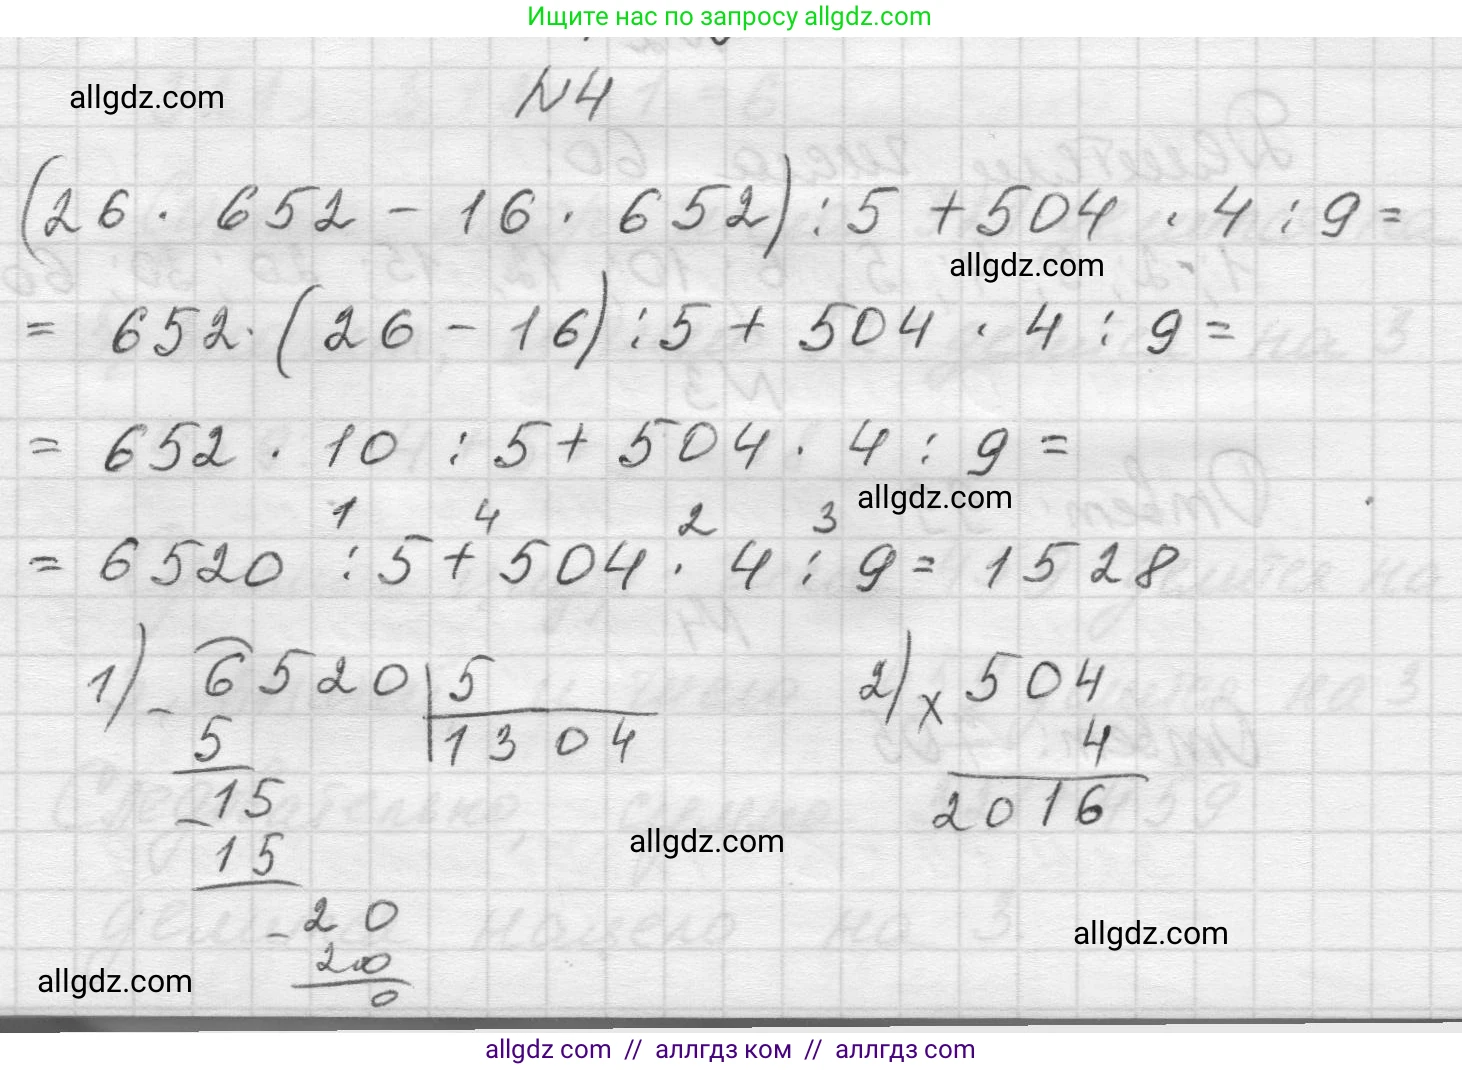 Ищите нас по запросу allgdz.com
allgdz.com
№4
(26 · 652 - 16 · 652) : 5 + 504 · 4 : 9 =
allgdz.com
= 652 · (26 - 16) : 5 + 504 · 4 : 9 =
= 652 · 10 : 5 + 504 · 4 : 9 =
allgdz.com
1 4 2 3
= 6520 : 5 + 504 · 4 : 9 = 1528
1) 6520 | 5
- 5 1304
15
- 15
20
- 20
0
2) × 504
4
2016
allgdz.com
allgdz.com
allgdz.com
allgdz com // аллгдз ком // аллгдз com